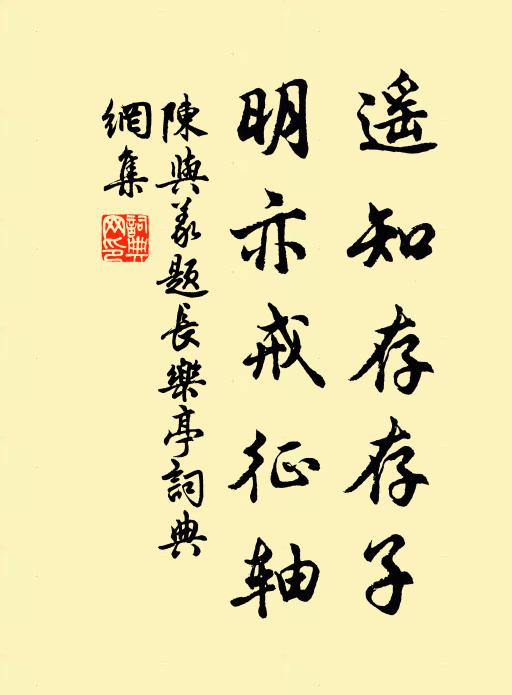 遥知存存子
明亦戒征軸
陳與義題長樂亭詞典
網集
詞典网印